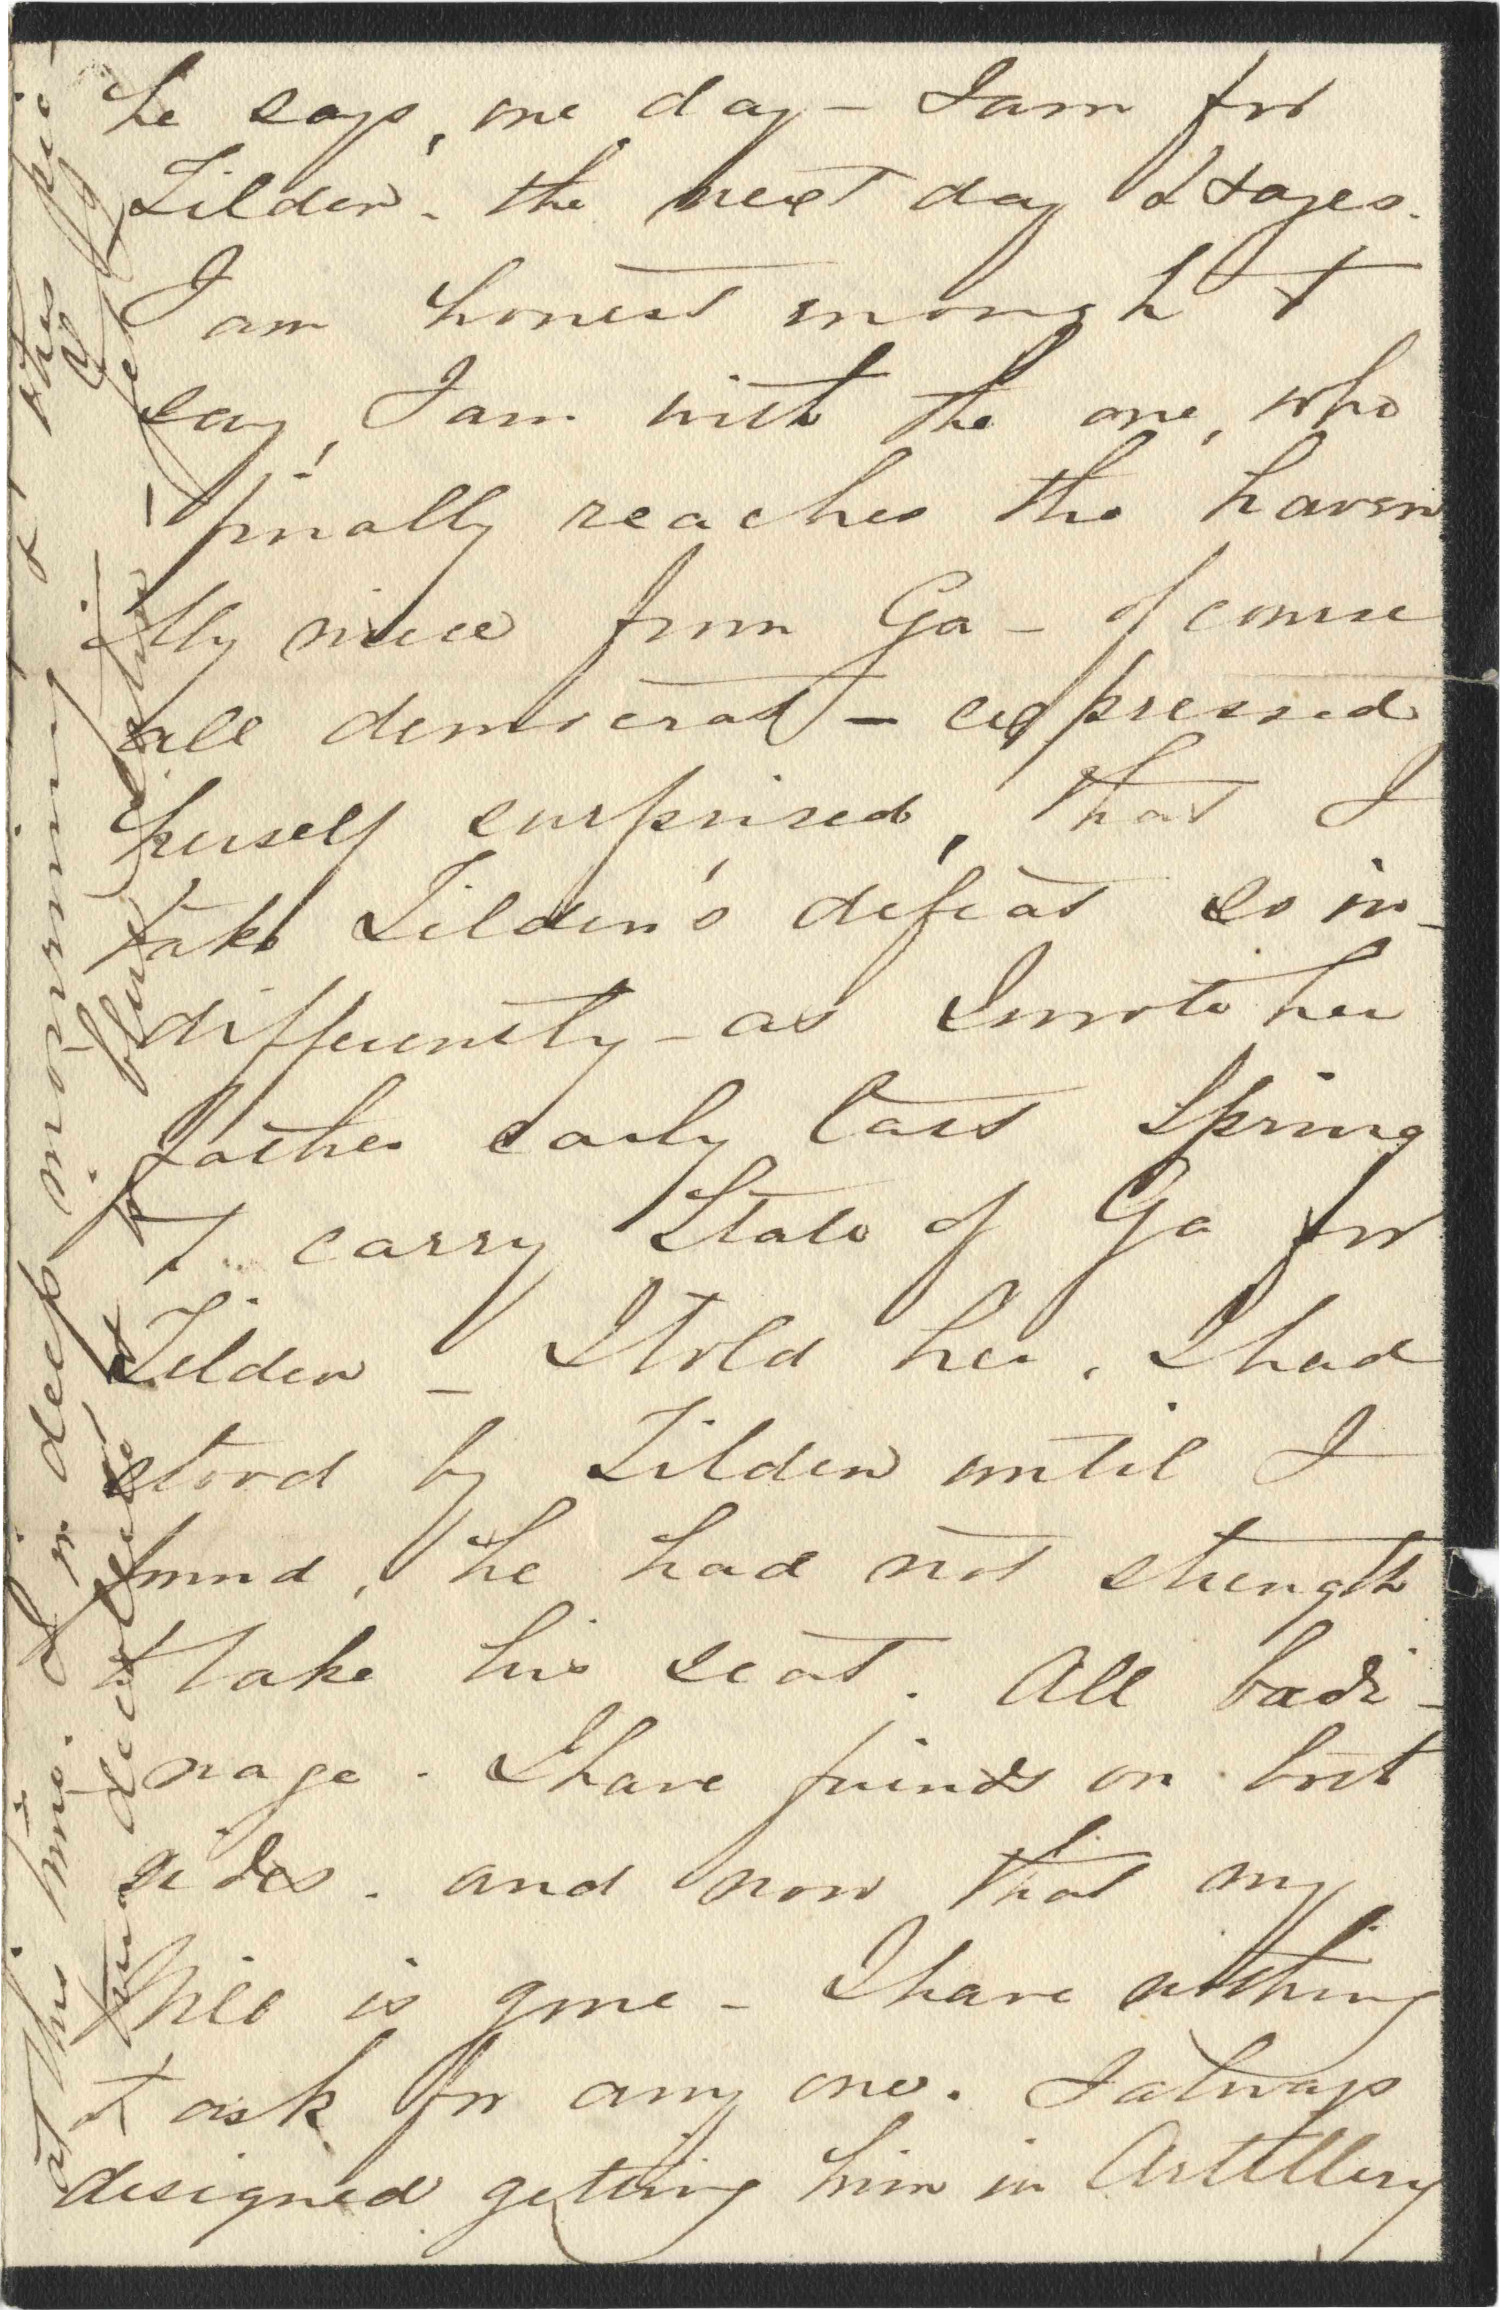 he says, one day - I am for
Tilden - the next day Hayes.
I am honest enough to
say, I am with the one, who
finally reaches the haven
My niece from Ga - of course
all democrat - expressed
herself surprised, that I
take Tilden's defeat so in-
differently - as I wrote her
father early last Spring
to carry State of Ga for
Tilden - I told her, I had
stood by Tilden until I
found, he had not strength
to take his seat. All badi-
nage. I have friends on both
sides. and now that my
Milo is gone - I have nothing
to ask for any one. I always
designed getting him in Artillery
at this time. I in deep mourning & this
my decollete
blue